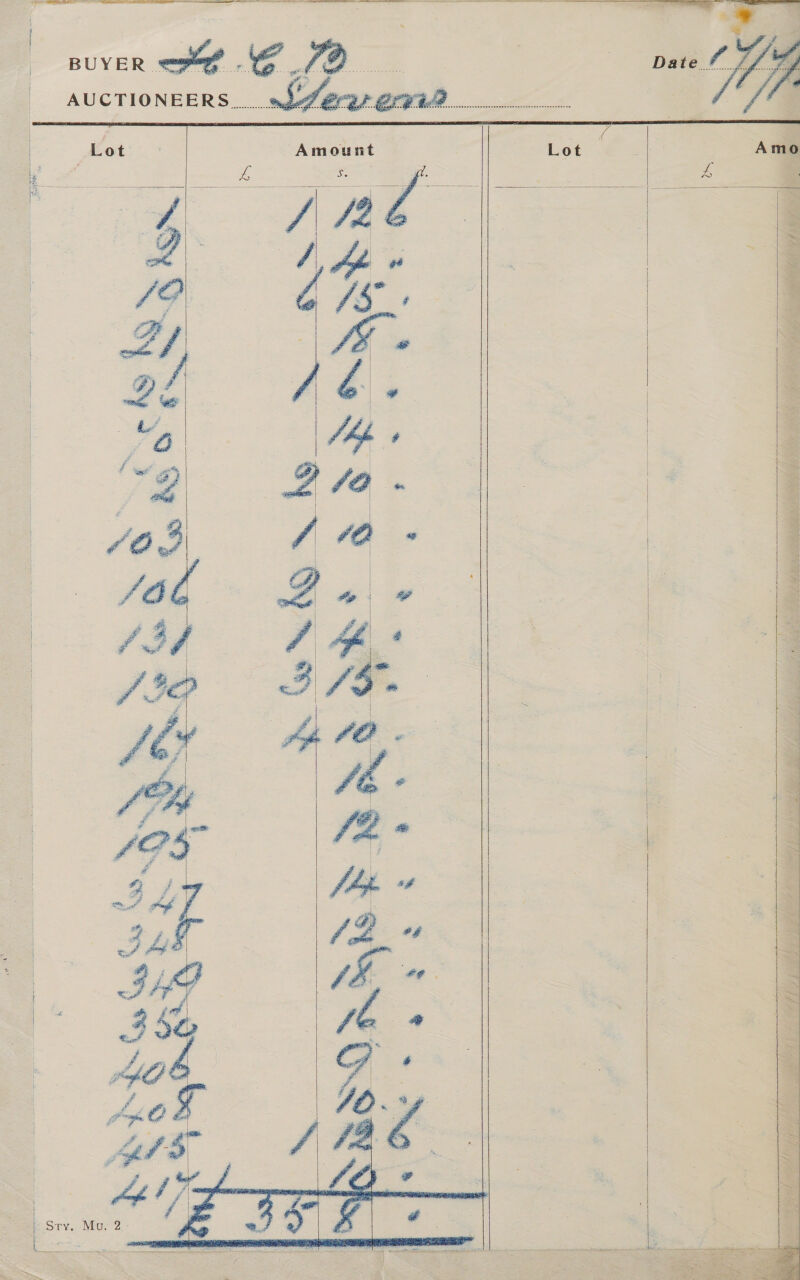 BUYER H. C. B
Date
AUCTIONEERS Stevens
Lot Amount Lot Amo
£ s. d. £
1 1 12 6
2 1 4 "
19 6 15 .
21 18 .
26 1 6 .
70 14 .
72 2 10 -
103 1 10 .
106 2 " "
131 1 4 .
139 3 15 .
167 4 10 .
194 16 .
195 12 .
347 14 "
348 12 "
349 18 "
350 16 .
406 9 .
408 10 . "
415 1 12 6
417 10 .
£ 35 8 .
Sty. Mu. 2